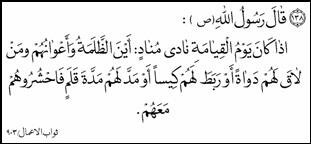 (١٣٨) قَالَ رَسُولُ اللهِ (ص) :
اذا كَانَ يَوْمُ الْقِيَامَةِ نَادى مُنادٍ: اَيْنَ الظَّلَمَةُ وَاَعْوَانُهُمْ وَمَنْ
لاقَ لَهُمْ دَوَاةً اَوْ رَبَطَ لَهُمْ كِيساً اَوْ مَدَّ لَهُمْ مَدَّةَ قَلَمٍ فَاحْشُرُوهُمْ
مَعَهُمْ.
ثواب الاعمال/٩٠٣